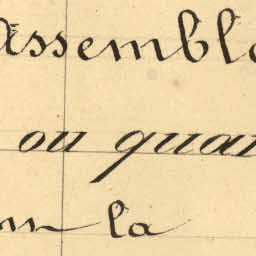 Assembl
ou quan
la